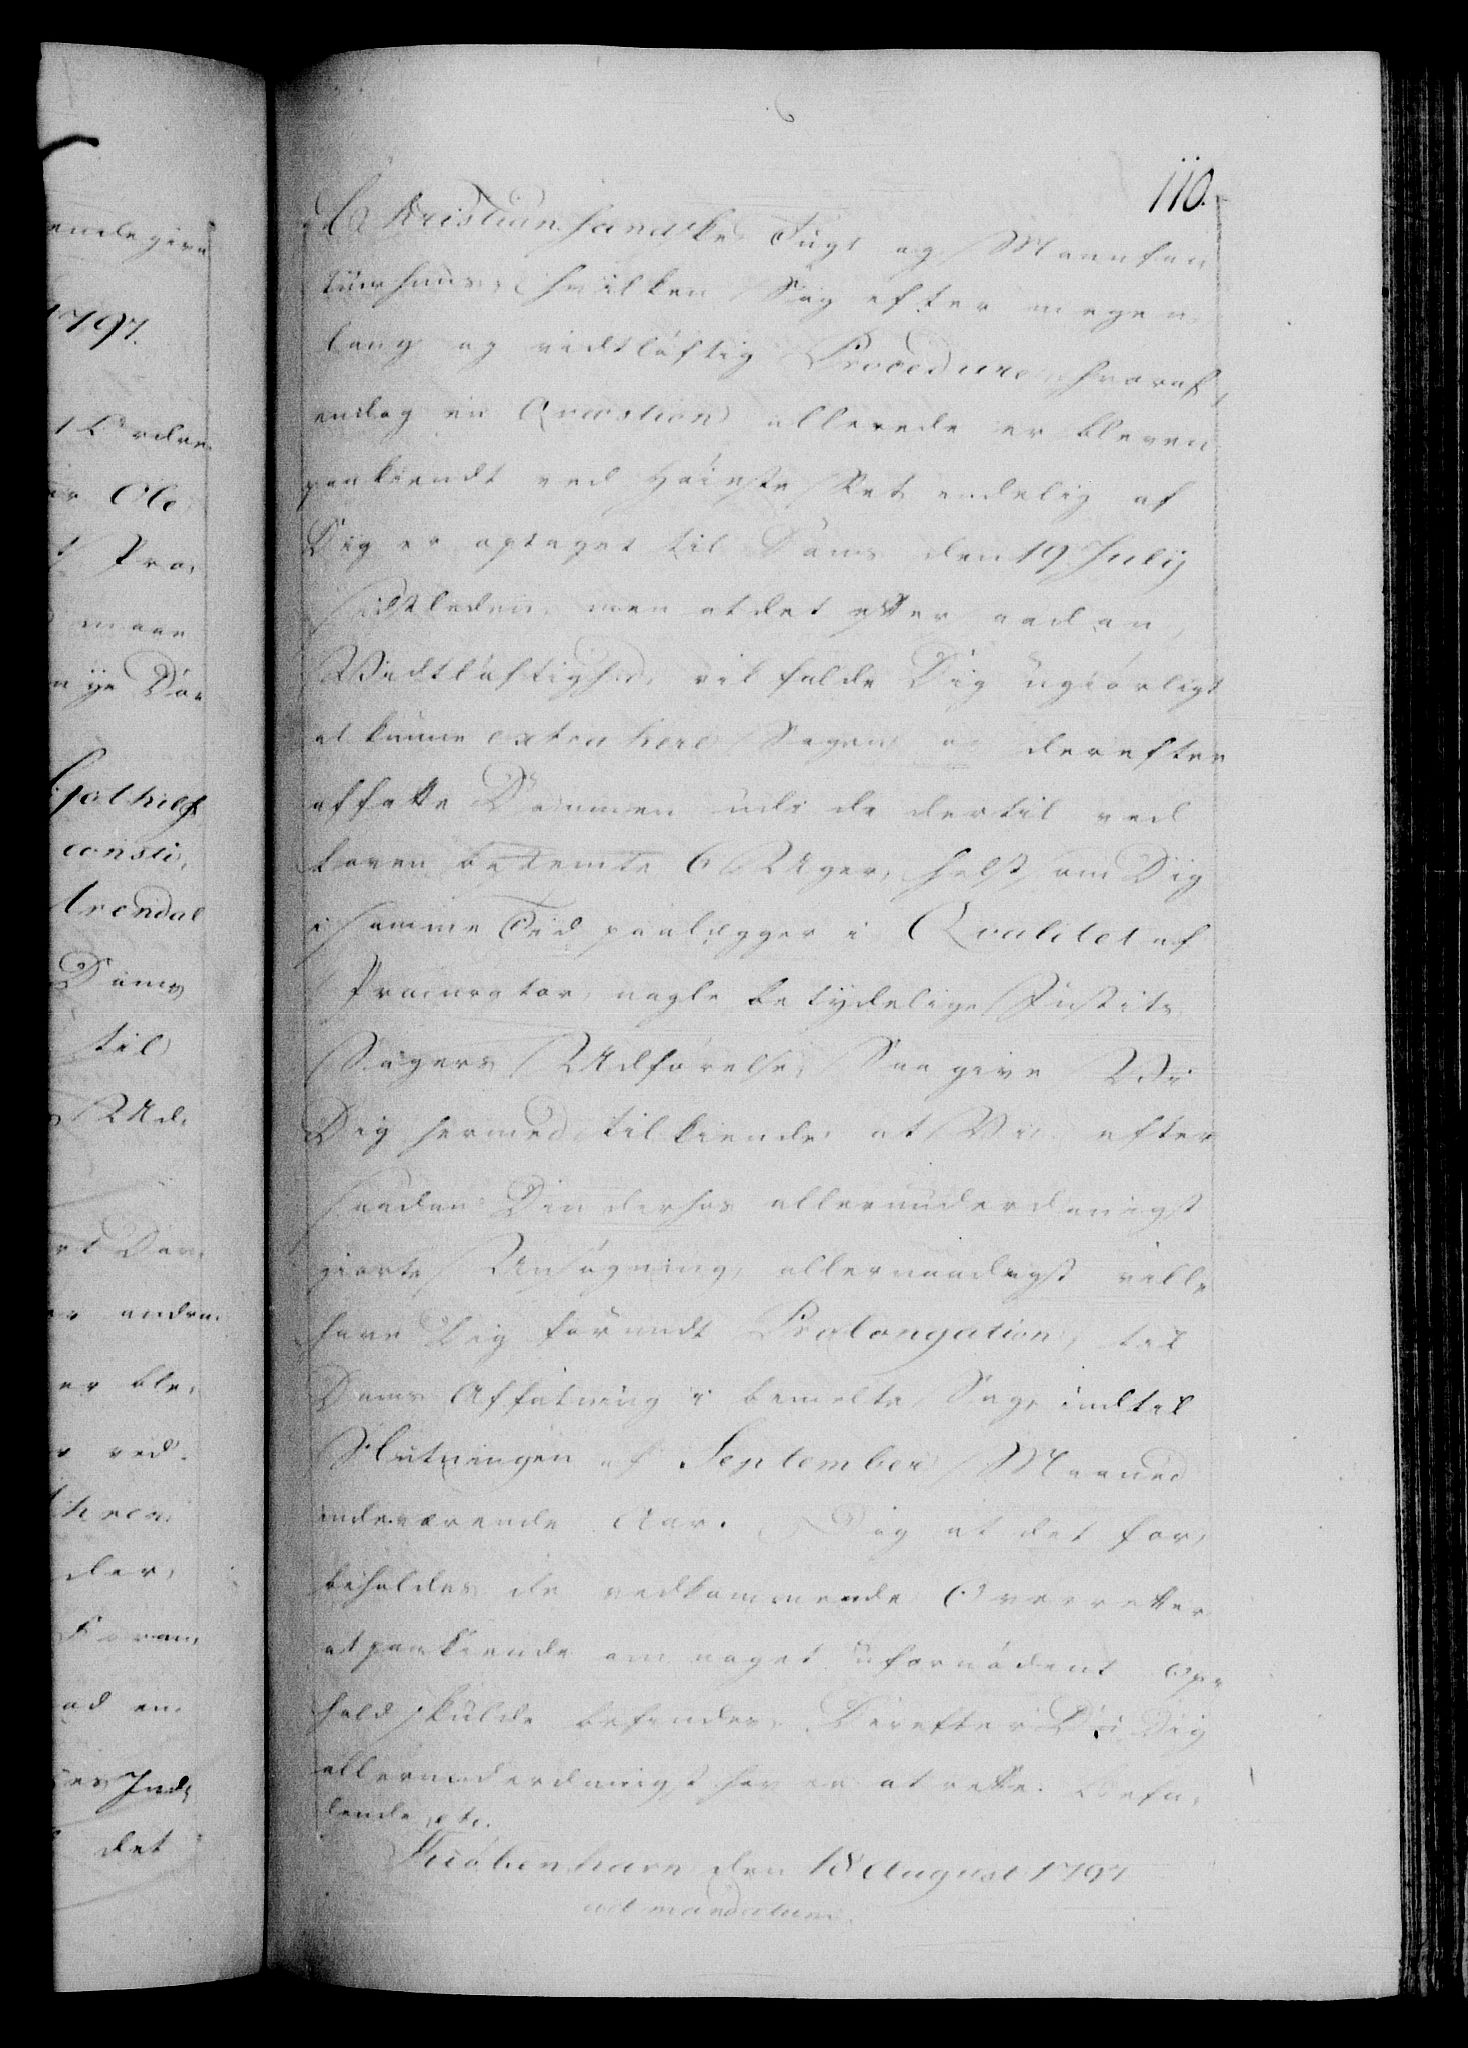 110.
Christiansandske Tugt og Manufac
tuurhuus, hvilken Sag efter megen
lang og vidtløftig Procedure, hvoraf
endog en Qvæstion allerede er bleven
paakiendt ved Høieste Ret endelig af
Dig er optaget til Doms den 19 Julij
sidstleden, men at det efter saadan
Vidtløftighed, vil falde Dig ugiørligt
at kunne extrahere Sagen og derefter
affatte Dommen udi de dertil ved
Loven bestemte 6 Uger, helst som Dig
i samme Tid paalægger i Qvalitet af
Procurator, nogle betydelige Justits
Sagers Udførelse; Saa give Vi
Dig hermed tilkiende, at Vi efter
saadan Din derhos allerunderdanigst
giorte Ansøgning, allernaadigst ville
have Dig forundt Prolongation, til
Doms Affatning i bemelte Sag, indtil
Slutningen af September Maaned
indeværende Aar. Dog at det for,
beholdes de vedkommende Overretter
at paakiende om noget ufornødent Op,
hold skulde befindes. Derefter Du Dig
allerunderdanigst haver at rette. Befa,
lende etc.
Kiøbenhavn den 18 August 1797
ad mandatum.
endegive
1797.
Ordre
Ole
Pro,
maae
nye Dø
Gothilf
consti,
Arendal
Doms
til
Ud,
andre
er ble,
ved
der,
ad en,
Ind,
det